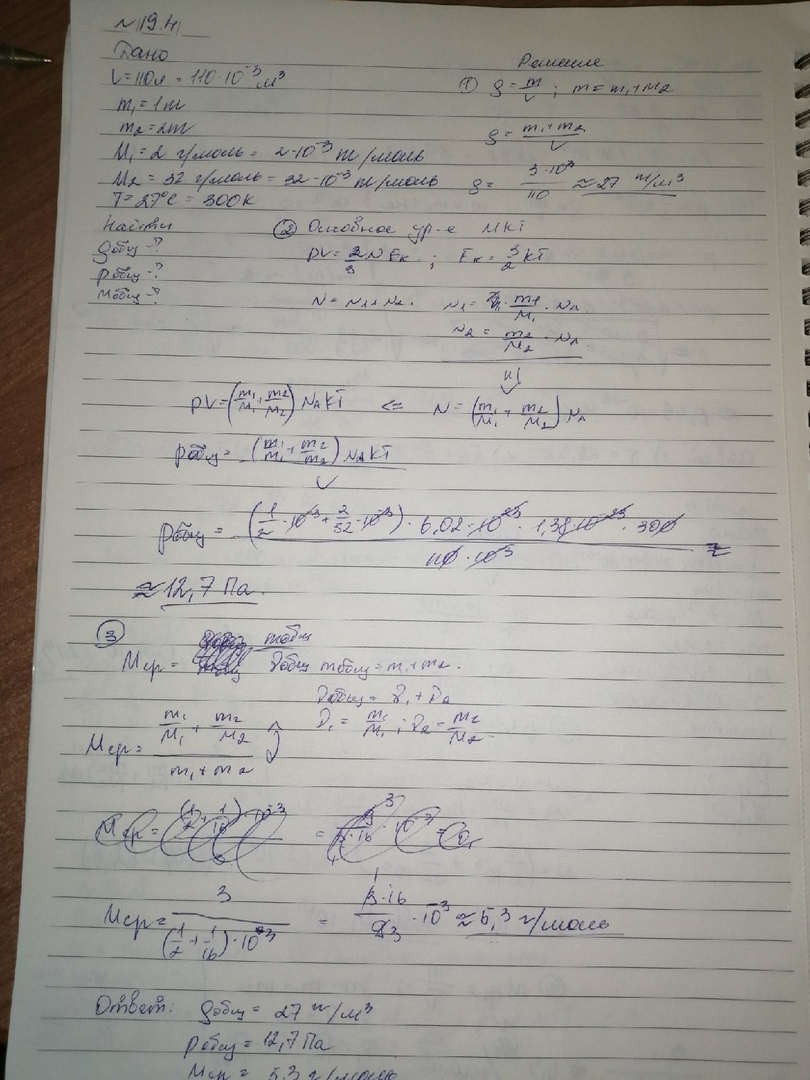 №19.4
Дано
V=110л = 110·10⁻³ м³
m₁=1т
m₂=2т
M₁=2 г/моль = 2·10⁻³ т/моль
M₂=32 г/моль = 32·10⁻³ т/моль
T=27°C = 300К
Найти
ρобщ -?
pобщ -?
Mобщ -?
Решение
① ρ = m/V ; m = m₁+m₂
ρ = (m₁+m₂)/V
ρ = 3·10³/110 ≈ 27 т/м³
② Основное ур-е МКТ
pV = 2/3 N Eк ; Eк = 3/2 kT
N = N₁+N₂. N₁ = m₁/M₁ · NA
N₂ = m₂/M₂ · NA
pV = (m₁/M₁ + m₂/M₂) NA kT <= N = (m₁/M₁ + m₂/M₂) NA
pобщ = (m₁/M₁ + m₂/M₂) NA kT / V
pобщ = (1/2 · 10⁻³ + 2/32 · 10⁻³) · 6,02 · 10²³ · 1,38·10⁻²³ · 300 / 110 · 10⁻³ ≈
≈ 12,7 Па.
③
Mср = mобщ / νобщ mобщ = m₁+m₂.
νобщ = ν₁ + ν₂
Mср = (m₁/M₁ + m₂/M₂) / (m₁+m₂) ν₁ = m₁/M₁ ; ν₂ = m₂/M₂
Mср = 3 / (1/2 + 1/16)·10³ = 3·16/93 · 10³ ≈ 5,3 г/моль
Ответ: ρобщ = 27 т/м³
pобщ = 12,7 Па
Mср = 5,3 г/моль